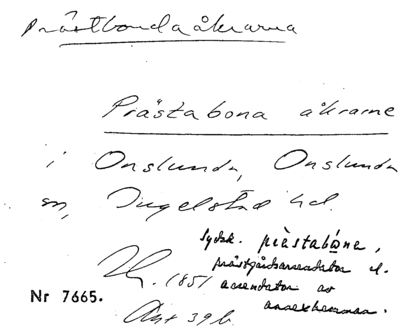 Prästbondaåkrarna
Prästabona åkrarne
i Onslunda, Onslunda
sn, Ingelstad hd.
sydsk. prästabóne,
prästgårdsarrendator el.
1851 arrendator av
Nr 7665. annexhemman.
Akt 39 b.